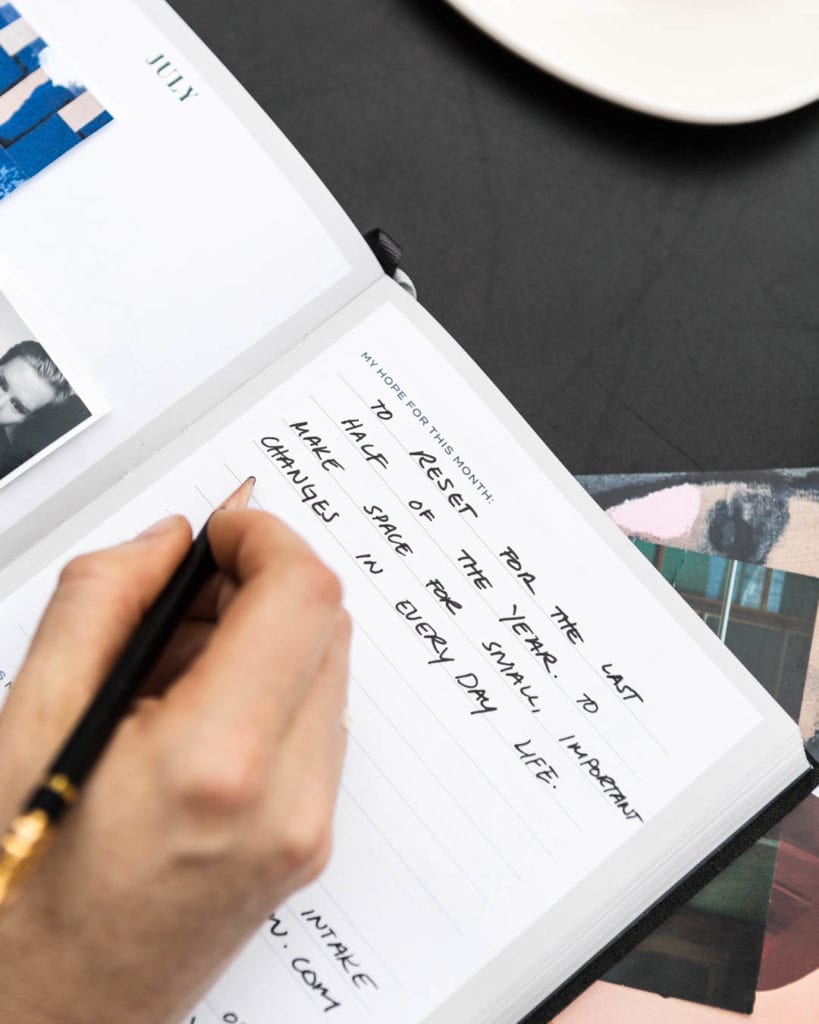 JULY
MY HOPE FOR THIS MONTH:
TO RESET FOR THE LAST
HALF OF THE YEAR. TO
MAKE SPACE FOR SMALL, IMPORTANT
CHANGES IN EVERY DAY LIFE.
INTAKE
.COM